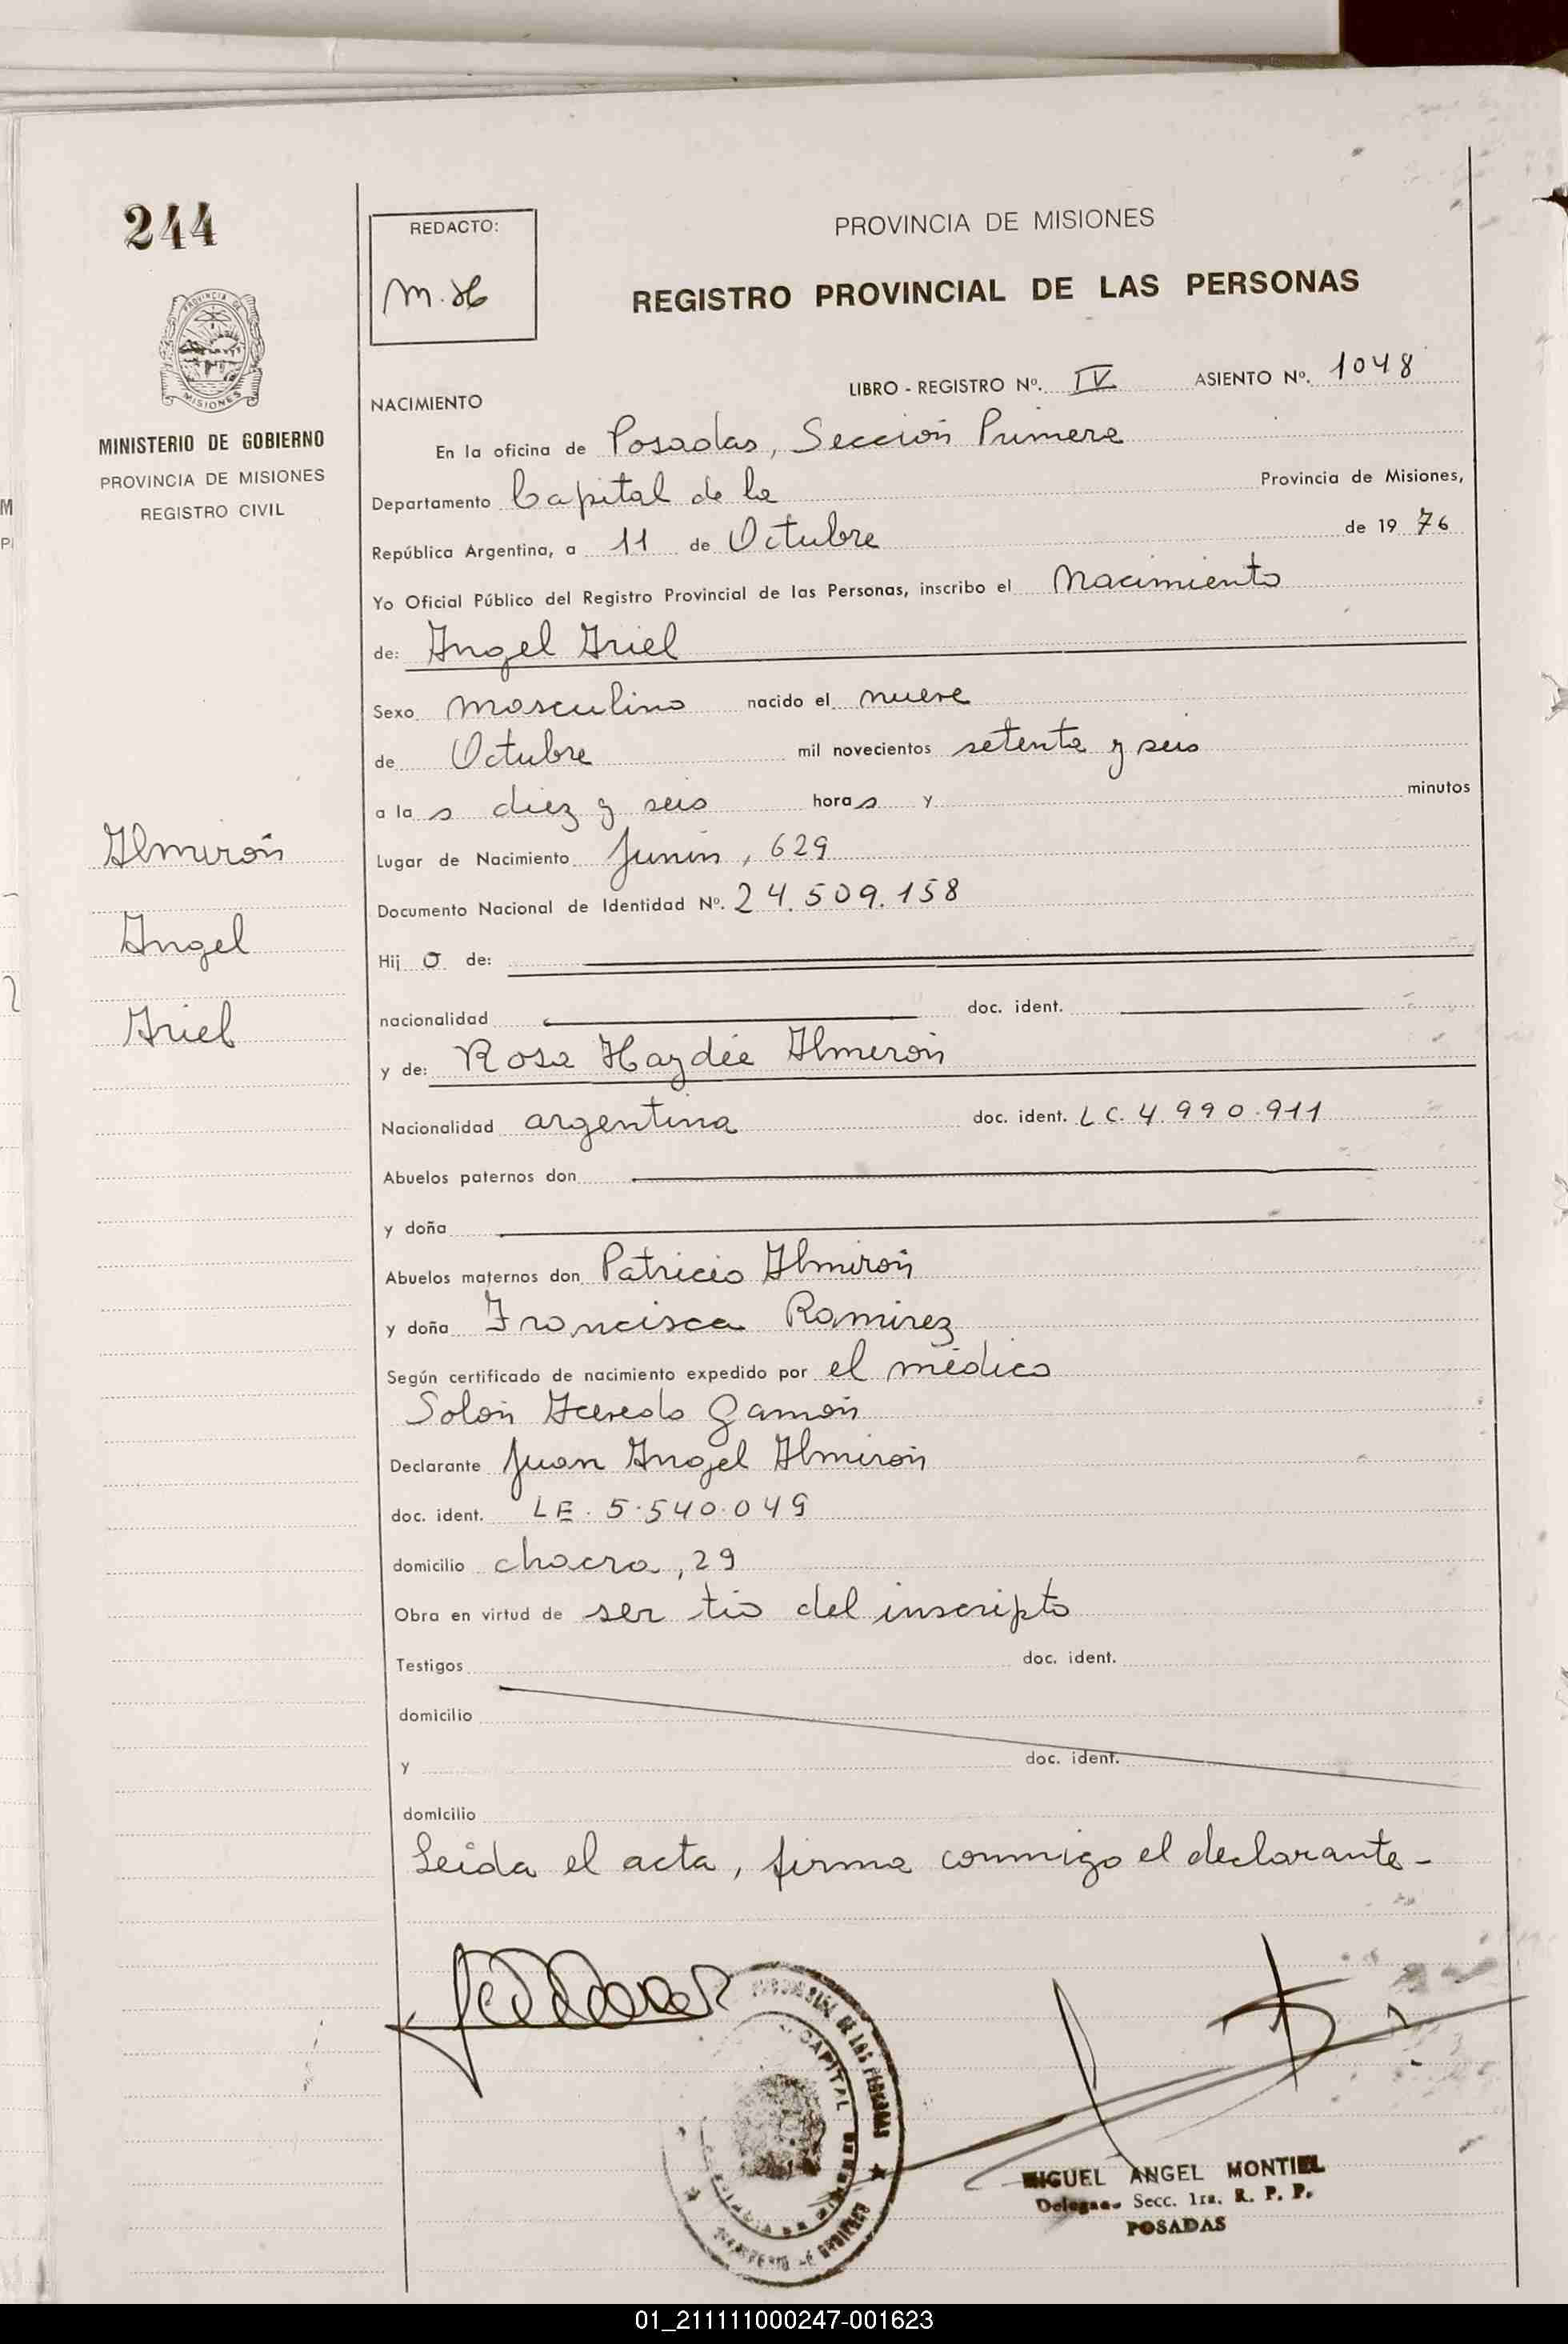 244
REDACTO:
M.H
PROVINCIA DE MISIONES
REGISTRO PROVINCIAL DE LAS PERSONAS
PROVINCIA DE
MISIONES
MINISTERIO DE GOBIERNO
PROVINCIA DE MISIONES
REGISTRO CIVIL
LIBRO - REGISTRO Nº. IV ASIENTO Nº. 1048
NACIMIENTO
En la oficina de Posadas, Sección Primera
Departamento Capital de la Provincia de Misiones,
República Argentina, a 11 de Octubre de 19 76
Yo Oficial Público del Registro Provincial de las Personas, inscribo el Nacimiento
de: Angel Ariel
Sexo masculino nacido el nueve
de Octubre mil novecientos setenta y seis
a la s diez y seis hora s y minutos
Almirón
Angel
Ariel
Lugar de Nacimiento Junín, 629
Documento Nacional de Identidad Nº. 24.509.158
Hij o de:
nacionalidad doc. ident.
y de: Rosa Haydée Almirón
Nacionalidad argentina doc. ident. LC. 4.990.911
Abuelos paternos don
y doña
Abuelos maternos don Patricio Almirón
y doña Francisca Ramírez
Según certificado de nacimiento expedido por el médico
Solón Acevedo Gamón
Declarante Juan Angel Almirón
doc. ident. LE. 5.540.049
domicilio chacra, 29
Obra en virtud de ser tío del inscripto
Testigos doc. ident.
domicilio
y doc. ident.
domicilio
Leída el acta, firma conmigo el declarante-
DE LAS PERSONAS
CAPITAL
MIGUEL ANGEL MONTIEL
Delegado Secc. 1ra. R. P. P.
POSADAS
01_211111000247-001623